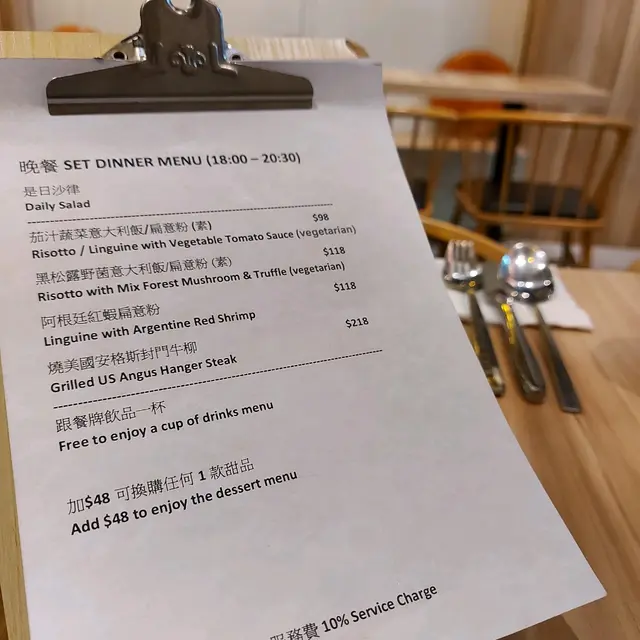 晚餐 SET DINNER MENU (18:00 – 20:30)
是日沙律
Daily Salad
茄汁蔬菜意大利飯/扁意粉 (素) $98
Risotto / Linguine with Vegetable Tomato Sauce (vegetarian)
黑松露野菌意大利飯/扁意粉 (素) $118
Risotto with Mix Forest Mushroom & Truffle (vegetarian)
阿根廷紅蝦扁意粉 $118
Linguine with Argentine Red Shrimp
燒美國安格斯封門牛柳 $218
Grilled US Angus Hanger Steak
跟餐牌飲品一杯
Free to enjoy a cup of drinks menu
加$48 可換購任何 1 款甜品
Add $48 to enjoy the dessert menu
服務費 10% Service Charge